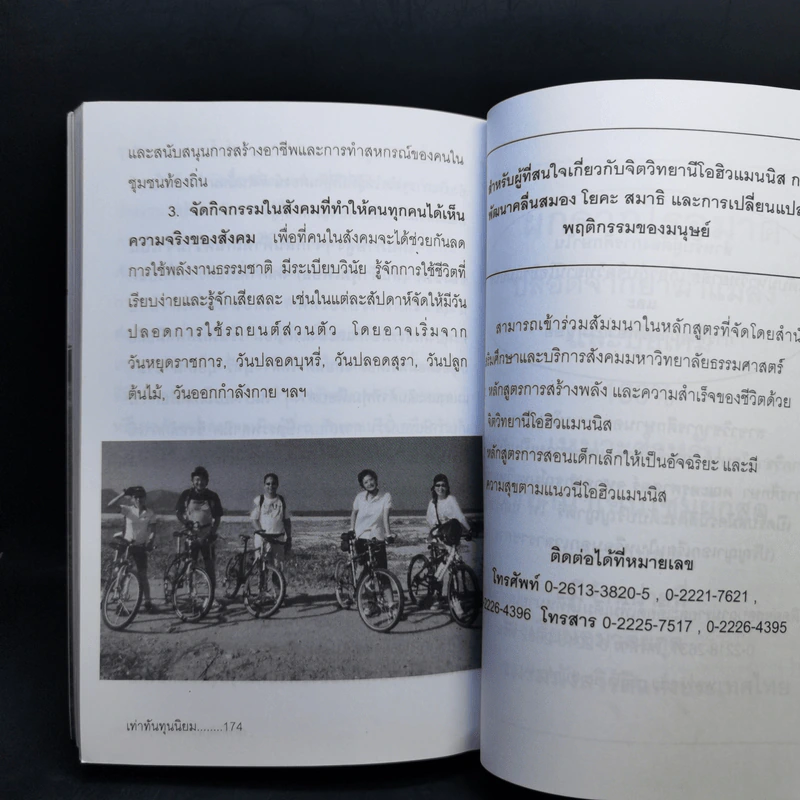 และสนับสนุนการสร้างอาชีพและการทำสหกรณ์ของคนใน
ชุมชนท้องถิ่น
3. จัดกิจกรรมในสังคมที่ทำให้คนทุกคนได้เห็น
ความจริงของสังคม เพื่อที่คนในสังคมจะได้ช่วยกันลด
การใช้พลังงานธรรมชาติ มีระเบียบวินัย รู้จักการใช้ชีวิตที่
เรียบง่ายและรู้จักเสียสละ เช่นในแต่ละสัปดาห์จัดให้มีวัน
ปลอดการใช้รถยนต์ส่วนตัว โดยอาจเริ่มจาก
วันหยุดราชการ, วันปลอดบุหรี่, วันปลอดสุรา, วันปลูก
ต้นไม้, วันออกกำลังกาย ฯลฯ
เท่าทันทุนนิยม........174
สำหรับผู้ที่สนใจเกี่ยวกับจิตวิทยานีโอฮิวแมนนิส
พัฒนาคลื่นสมอง โยคะ สมาธิ และการเปลี่ยนแปล
พฤติกรรมของมนุษย์
สามารถเข้าร่วมสัมมนาในหลักสูตรที่จัดโดยสำนั
ริมศึกษาและบริการสังคมมหาวิทยาลัยธรรมศาสตร์
หลักสูตรการสร้างพลัง และความสำเร็จของชีวิตด้วย
จิตวิทยานีโอฮิวแมนนิส
หลักสูตรการสอนเด็กเล็กให้เป็นอัจฉริยะ และมี
ความสุขตามแนวนีโอฮิวแมนนิส
ติดต่อได้ที่หมายเลข
โทรศัพท์ 0-2613-3820-5 , 0-2221-7621 ,
2226-4396 โทรสาร 0-2225-7517 , 0-2226-4395